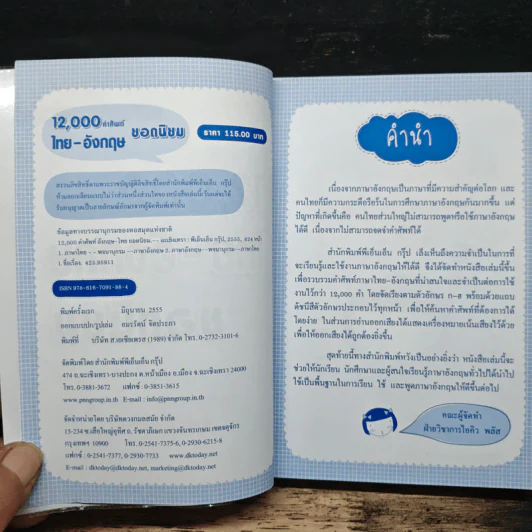 12,000 คำศัพท์
ไทย-อังกฤษ
ยอดนิยม
ราคา 115.00 บาท
สงวนลิขสิทธิ์ตามพระราชบัญญัติลิขสิทธิ์โดยสำนักพิมพ์พีเอ็นเอ็น กรุ๊ป
ห้ามลอกเลียนแบบไม่ว่าส่วนหนึ่งส่วนใดของหนังสือเล่มนี้ เว้นแต่จะได้
รับอนุญาตเป็นลายลักษณ์อักษรจากผู้จัดพิมพ์เท่านั้น
ข้อมูลทางบรรณานุกรมของหอสมุดแห่งชาติ
12,000 คำศัพท์ อังกฤษ-ไทย ยอดนิยม.-- ฉะเชิงเทรา : พีเอ็นเอ็น กรุ๊ป, 2555, 624 หน้า
1. ภาษาไทย - - พจนานุกรม --ภาษาอังกฤษ 2. ภาษาอังกฤษ--พจนานุกรม--ภาษาไทย
I. ชื่อเรื่อง. 423.95911
ISBN 978-616-7091-98-4
พิมพ์ครั้งแรก มิถุนายน 2555
ออกแบบปก/รูปเล่ม อมรรัตน์ จิตประภา
พิมพ์ที่ บริษัท ส.เอเซียเพรส (1989) จำกัด โทร. 0-2732-3101-6
จัดพิมพ์โดย สำนักพิมพ์พีเอ็นเอ็น กรุ๊ป
474 ถ.ฉะเชิงเทรา-บางปะกง ต.หน้าเมือง อ.เมือง จ.ฉะเชิงเทรา 24000
โทร. 0-3881-3672 แฟกซ์ : 0-3851-3615
www.pnngroup.in.th E-mail : info@pnngroup.in.th
จัดจำหน่ายโดย บริษัทดวงกมลสมัย จำกัด
15-234 ซ.เสือใหญ่อุทิศ ถ. รัชดาภิเษก แขวงจันทรเกษม เขตจตุจักร
กรุงเทพฯ 10900 โทร: 0-2541-7375-6, 0-2930-6215-8
แฟกซ์ : 0-2541-7377, 0-2930-7733 www.dktoday.net
E-mail : dktoday@dktoday.net, marketing@dktoday.net
คำนำ
เนื่องจากภาษาอังกฤษเป็นภาษาที่มีความสำคัญต่อโลก และ
คนไทยก็มีความกระตือรือร้นในการศึกษาภาษาอังกฤษกันมากขึ้น แต่
ปัญหาที่เกิดขึ้นคือ คนไทยส่วนใหญ่ไม่สามารถพูดหรือใช้ภาษาอังกฤษ
ได้ดี เนื่องจากไม่สามารถจดจำคำศัพท์ได้
สำนักพิมพ์พีเอ็นเอ็น กรุ๊ป เล็งเห็นถึงความจำเป็นในการที่
จะเรียนรู้และใช้งานภาษาอังกฤษให้ได้ดี จึงได้จัดทำหนังสือเล่มนี้ขึ้น
เพื่อรวบรวมคำศัพท์ภาษาไทย-อังกฤษที่น่าสนใจและจำเป็นต่อการใช้
งานไว้กว่า 12,000 คำ โดยจัดเรียงตามตัวอักษร ก-ฮ พร้อมด้วยแถบ
ดัชนีสีตัวอักษรประกอบไว้ทุกหน้า เพื่อให้ค้นหาคำศัพท์ที่ต้องการได้
โดยง่าย ในส่วนการอ่านออกเสียงได้แสดงเครื่องหมายเน้นเสียงไว้ด้วย
เพื่อให้ออกเสียงได้ถูกต้องยิ่งขึ้น
สุดท้ายนี้ทางสำนักพิมพ์หวังเป็นอย่างยิ่งว่า หนังสือเล่มนี้จะ
ช่วยให้นักเรียน นักศึกษาและผู้สนใจเรียนรู้ภาษาอังกฤษทั่วไปได้นำไป
ใช้เป็นพื้นฐานในการเรียน ใช้ และพูดภาษาอังกฤษให้ดีขึ้นต่อไป
คณะผู้จัดทำ
ฝ่ายวิชาการไอคิว พลัส